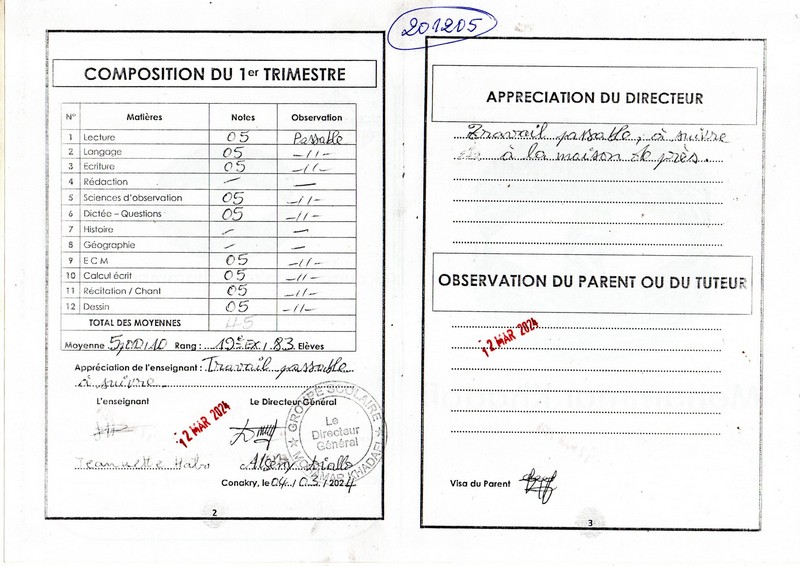 201205
COMPOSITION DU 1er TRIMESTRE
N° Matières Notes Observation
1 Lecture 05 Passable
2 Langage 05 -//-
3 Ecriture 05 -//-
4 Rédaction — —
5 Sciences d'observation 05 -//-
6 Dictée – Questions 05 -//-
7 Histoire — —
8 Géographie — —
9 E C M 05 -//-
10 Calcul écrit 05 -//-
11 Récitation / Chant 05 -//-
12 Dessin 05 -//-
TOTAL DES MOYENNES 45
Moyenne 5,00/10 Rang : 19è EX / 83 Elèves
Appréciation de l'enseignant : Travail passable
à suivre
L'enseignant Le Directeur Général
12 MAR 2024
GROUPE SCOLAIRE
Le
Directeur
Général
Jeannette Habo
Diallo
Conakry, le 04 / 03 / 2024
2
APPRECIATION DU DIRECTEUR
Travail passable, à suivre
à la maison de près.
OBSERVATION DU PARENT OU DU TUTEUR
12 MAR 2024
Visa du Parent
3